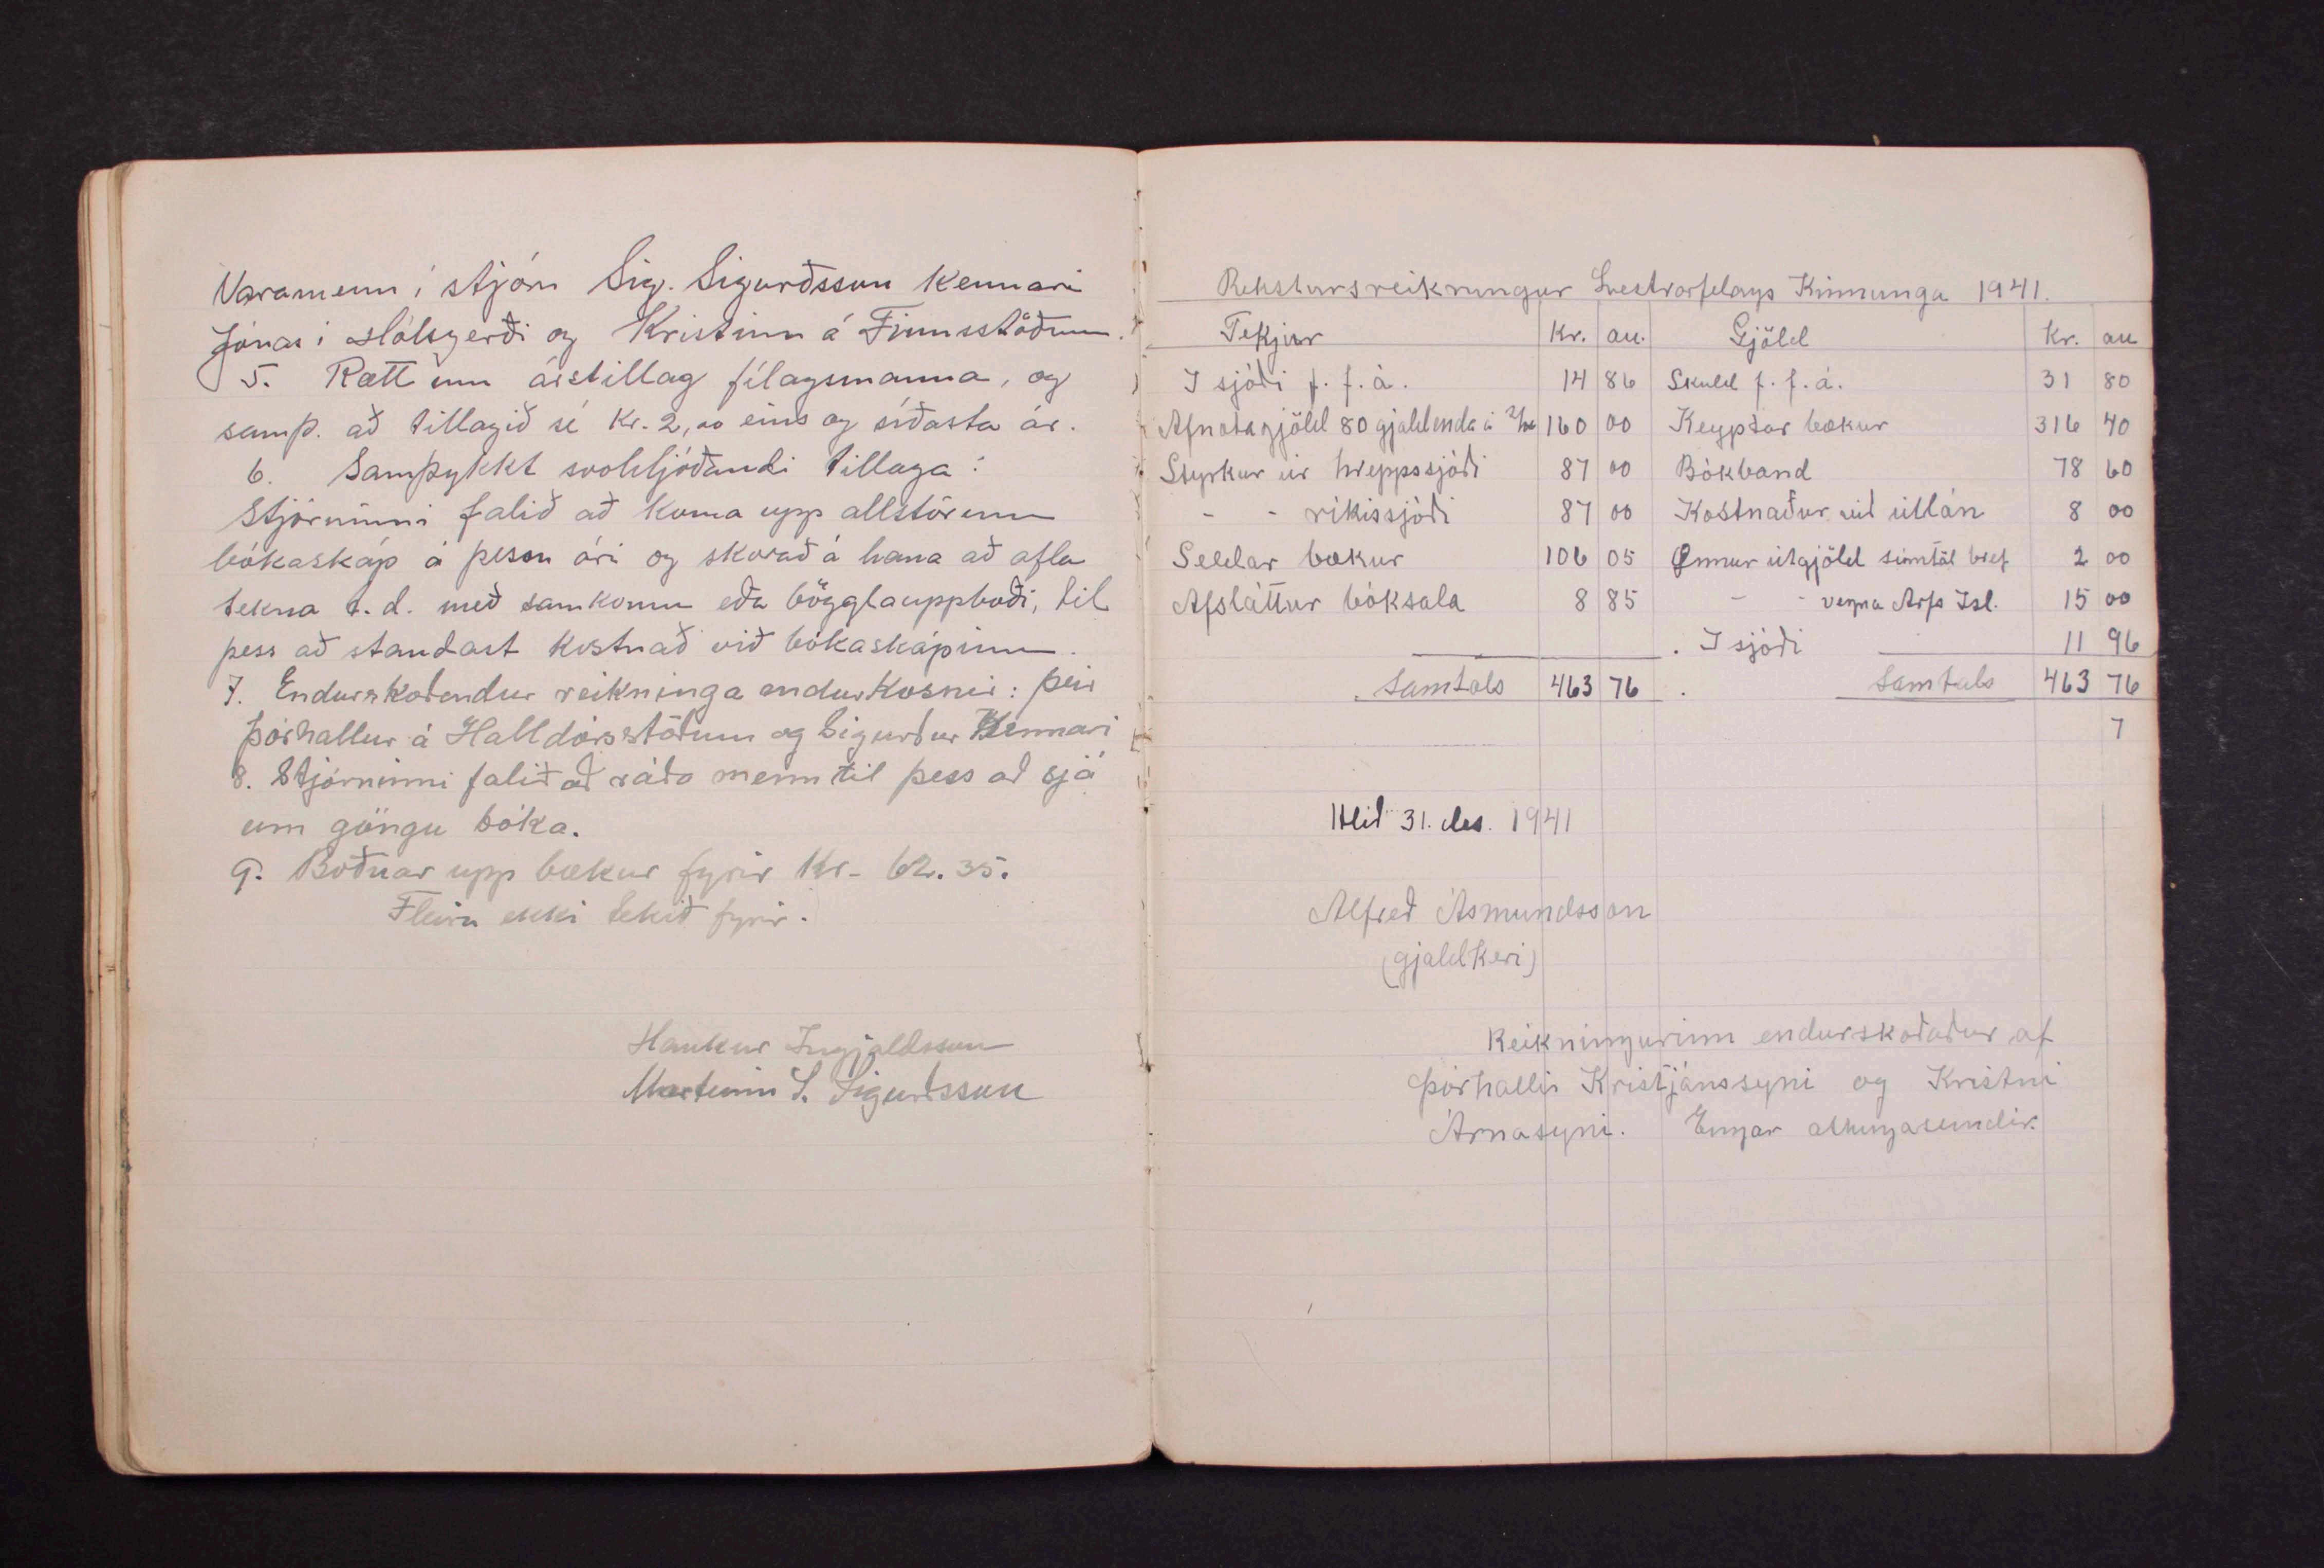 Varamenn í stjórn Sig. Sigurðsson Kennari
Jónas í Hólsgerði og Kristinn á Finnsstöðum.
5. Rætt um árstillag félagsmanna, og
samþ. að tillagið sé Kr. 2,00 eins og síðasta ár.
6. Samþykkt svohljóðandi tillaga:
Stjórninni falið að koma upp allstórum
bókaskáp á þessu ári og skorað á hana að afla
tekna t.d. með samkomu eða bögglauppboði, til
þess að standast kostnað við bókaskápinn.
7. Endurskoðendur reikninga endurkosnir: þeir
Þórhallur á Halldórsstöðum og Sigurður Kennari
8. Stjórninni falið að ráða menn til þess að sjá
um göngu bóka.
9. Boðnar upp bækur fyrir Kr- 62.35.
Fleira ekki tekið fyrir.
Haukur Ingjaldsson
Marteinn S. Sigurðsson
Rekstursreikningur Lestrarfelags Kinnunga 1941.
Tekjur Kr. au. Gjöld Kr. au
I sjóði f. f. á. 14 86 Skuld f. f. á. 31 80
Afnotagjöld 80 gjaldenda á 2/00 160 00 Keyptar bækur 316 40
Styrkur úr hreppssjóði 87 00 Bókband 78 60
- - ríkissjóði 87 00 Kostnaður við útlán 8 00
Seldar bækur 106 05 Önnur útgjöld símtöl bréf 2 00
Afsláttur bóksala 8 85 - - vegna Arfs Isl. 15 00
I sjóði 11 96
Samtals 463 76 Samtals 463 76
7
Hlíð 31. des. 1941
Alfreð Ásmundsson
(gjaldkeri)
Reikningurinn endurskoðaður af
Þórhalli Kristjánssyni og Kristni
Árnasyni. Engar athugasemdir.